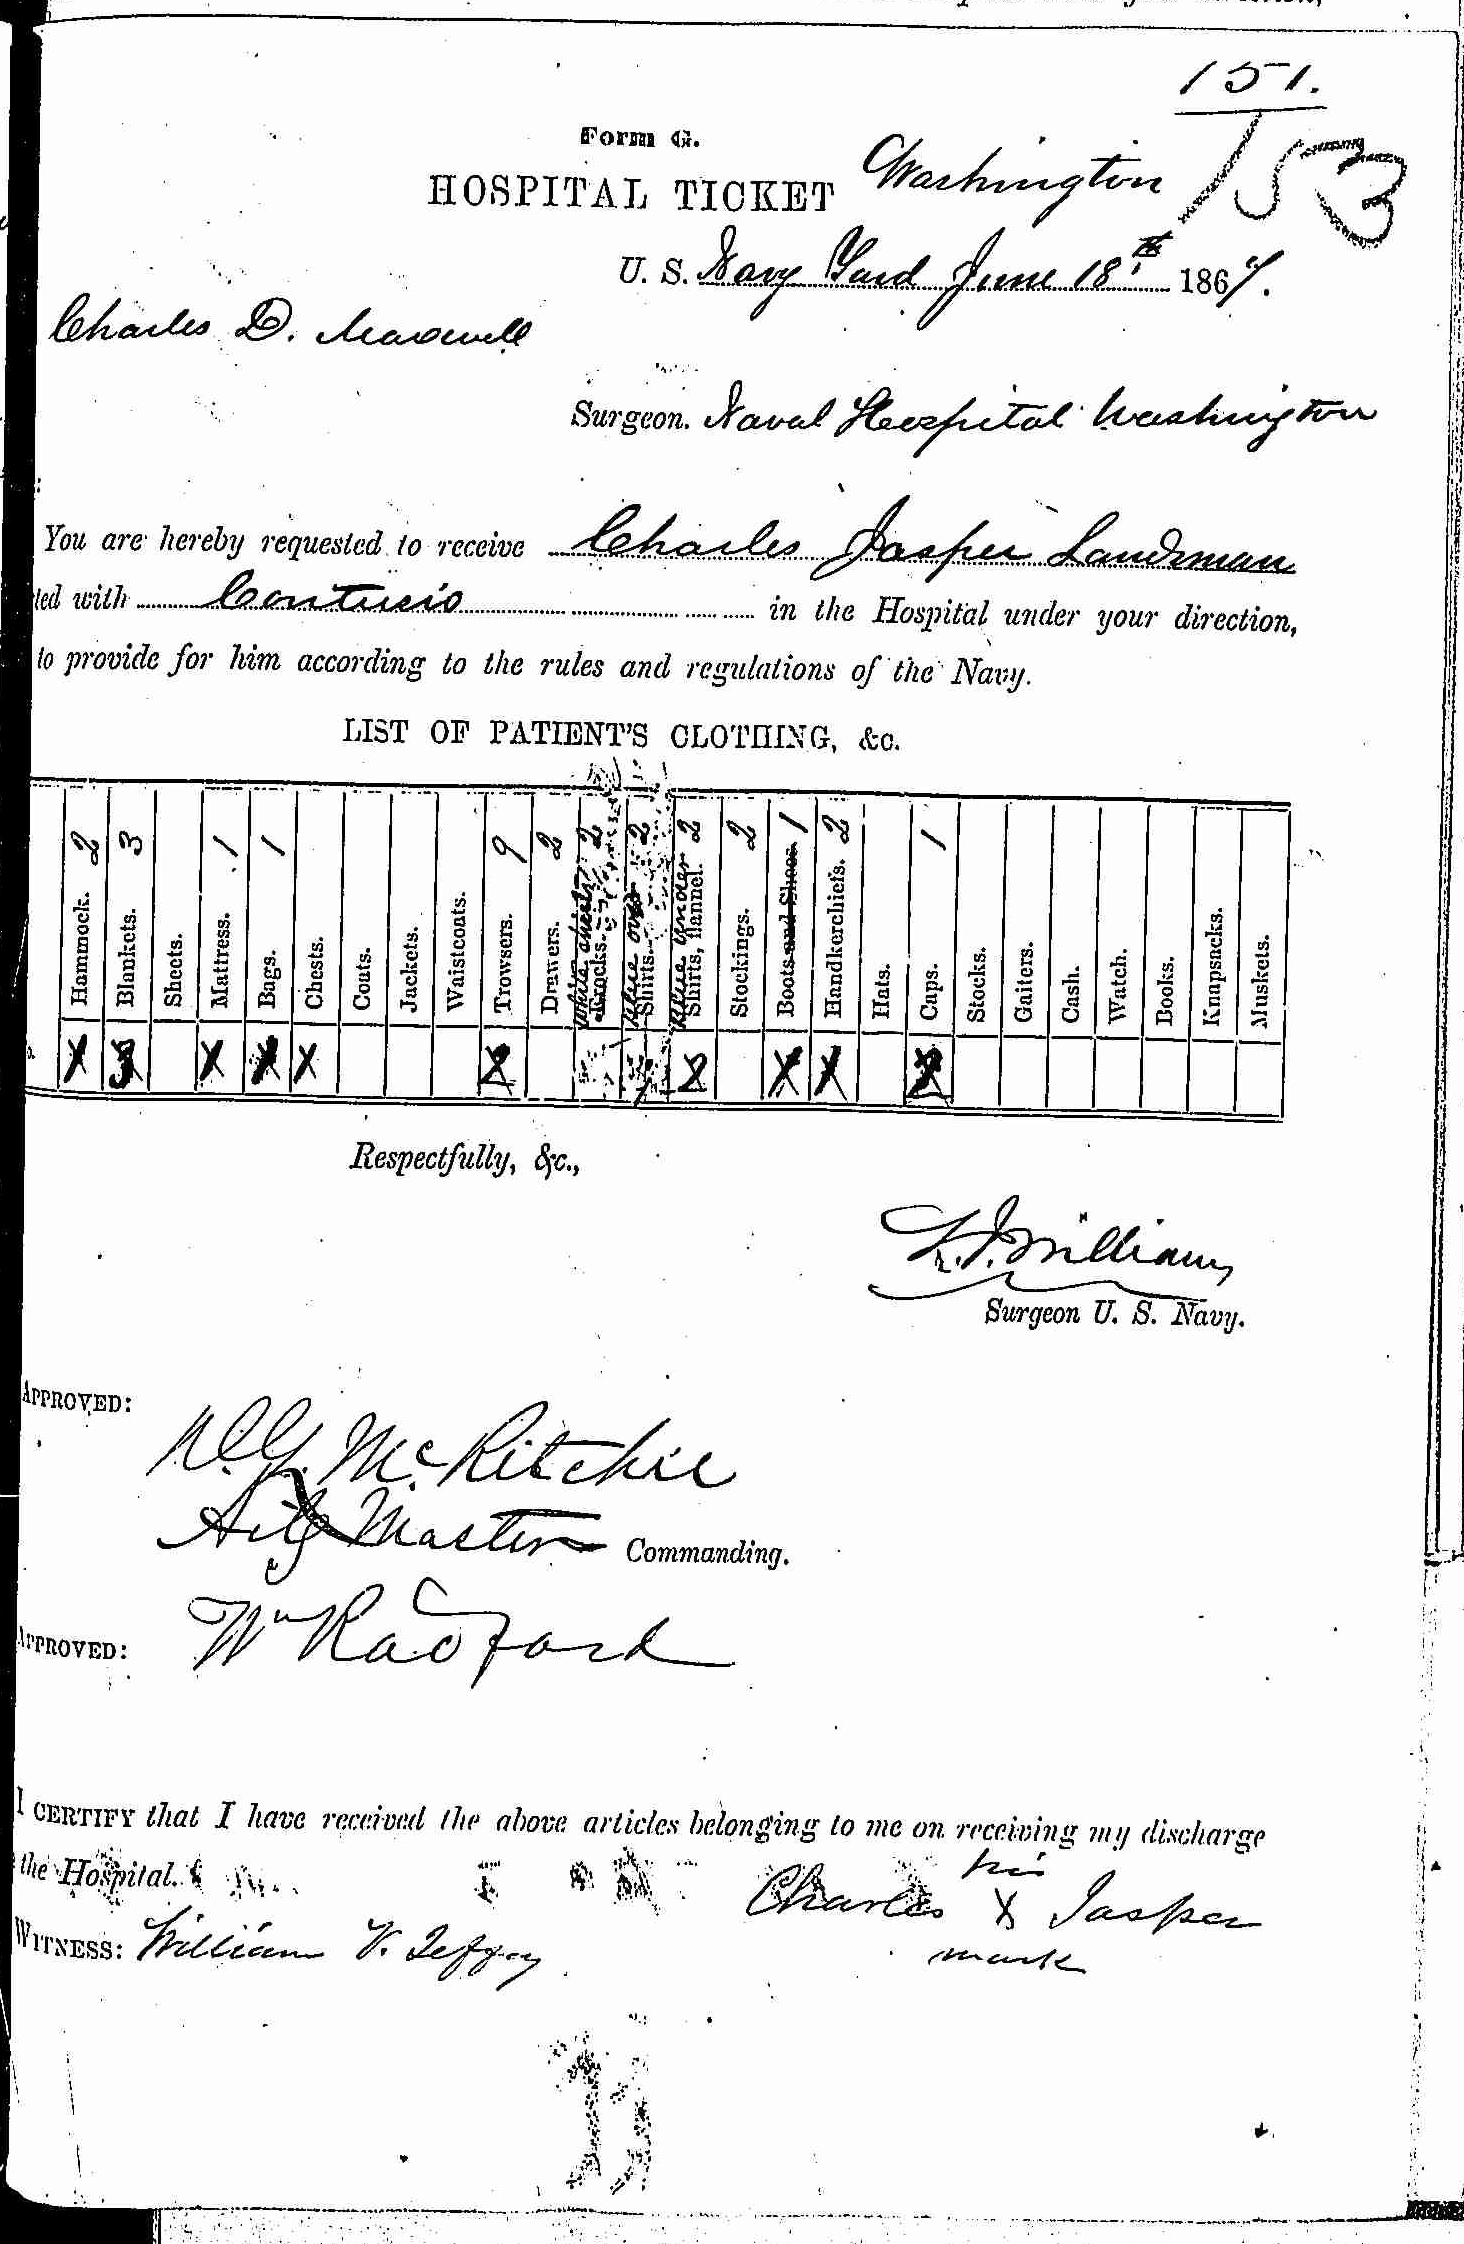 151.
153
Form G.
HOSPITAL TICKET Washington
U. S. Navy Yard June 18th 1867.
Charles D. Maxwell
Surgeon. Naval Hospital Washington
You are hereby requested to receive Charles Jasper Landsman
ted with Contusio in the Hospital under your direction,
to provide for him according to the rules and regulations of the Navy.
LIST OF PATIENT'S CLOTHING, &c.
Hammock. 2
Blankets. 3
Sheets.
Mattress. 1
Bags. 1
Chests.
Coats.
Jackets.
Waistcoats.
Trowsers. 9
Drawers. 2
White sheets Frocks. 2
Blue over Shirts. 2
Blue under Shirts, flannel. 2
Stockings. 2
Boots and Shoes. 1
Handkerchiefs. 2
Hats.
Caps. 1
Stocks.
Gaiters.
Cash.
Watch.
Books.
Knapsacks.
Muskets.
Respectfully, &c.,
Williams
Surgeon U. S. Navy.
APPROVED:
McRitchie
Master Commanding.
APPROVED: Wm Radford
I CERTIFY that I have received the above articles belonging to me on receiving my discharge
the Hospital.
his
Charles X Jasper
mark
WITNESS: William V.